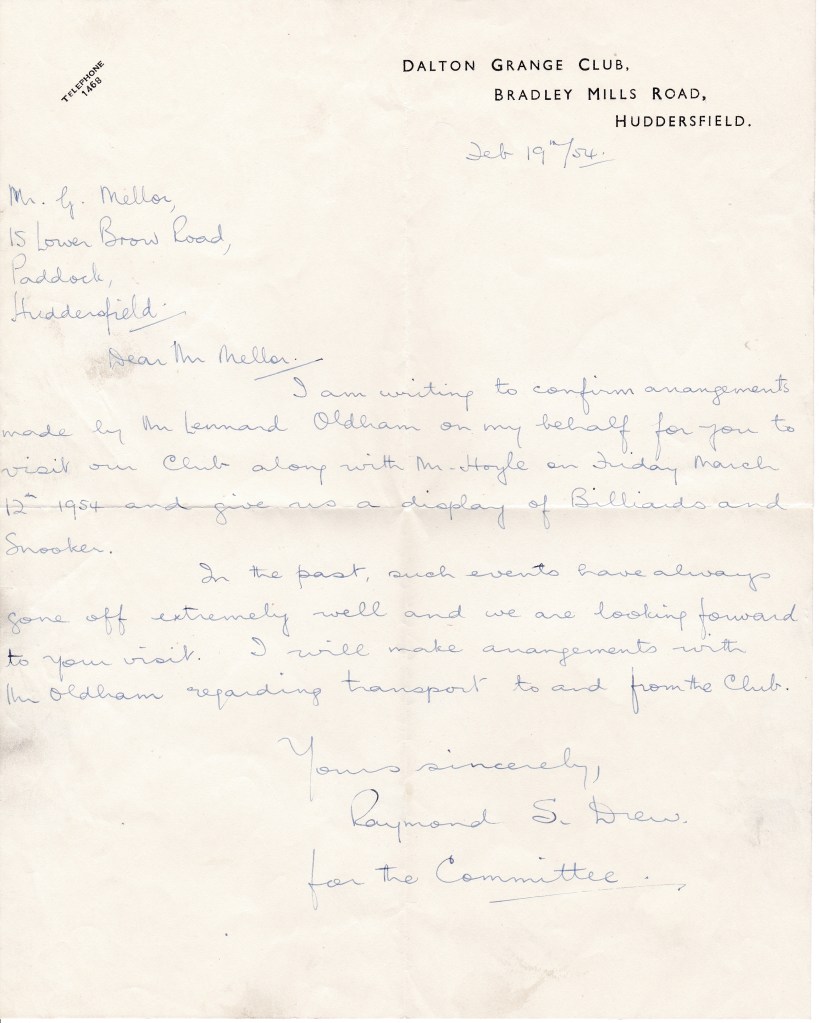 TELEPHONE
1468
DALTON GRANGE CLUB,
BRADLEY MILLS ROAD,
HUDDERSFIELD.
Feb 19th/54.
Mr. G. Mellor,
15 Lower Brow Road,
Paddock,
Huddersfield.
Dear Mr Mellor.
I am writing to confirm arangements
made by Mr Lennard Oldham on my behalf for you to
visit our Club along with Mr. Hoyle on Friday March
12th 1954 and give us a display of Billiards and
Snooker.
In the past, such events have always
gone off extremely well and we are looking forward
to your visit. I will make arangements with
Mr Oldham regarding transport to and from the Club.
Yours sincerely,
Raymond S. Drew.
for the Committee.